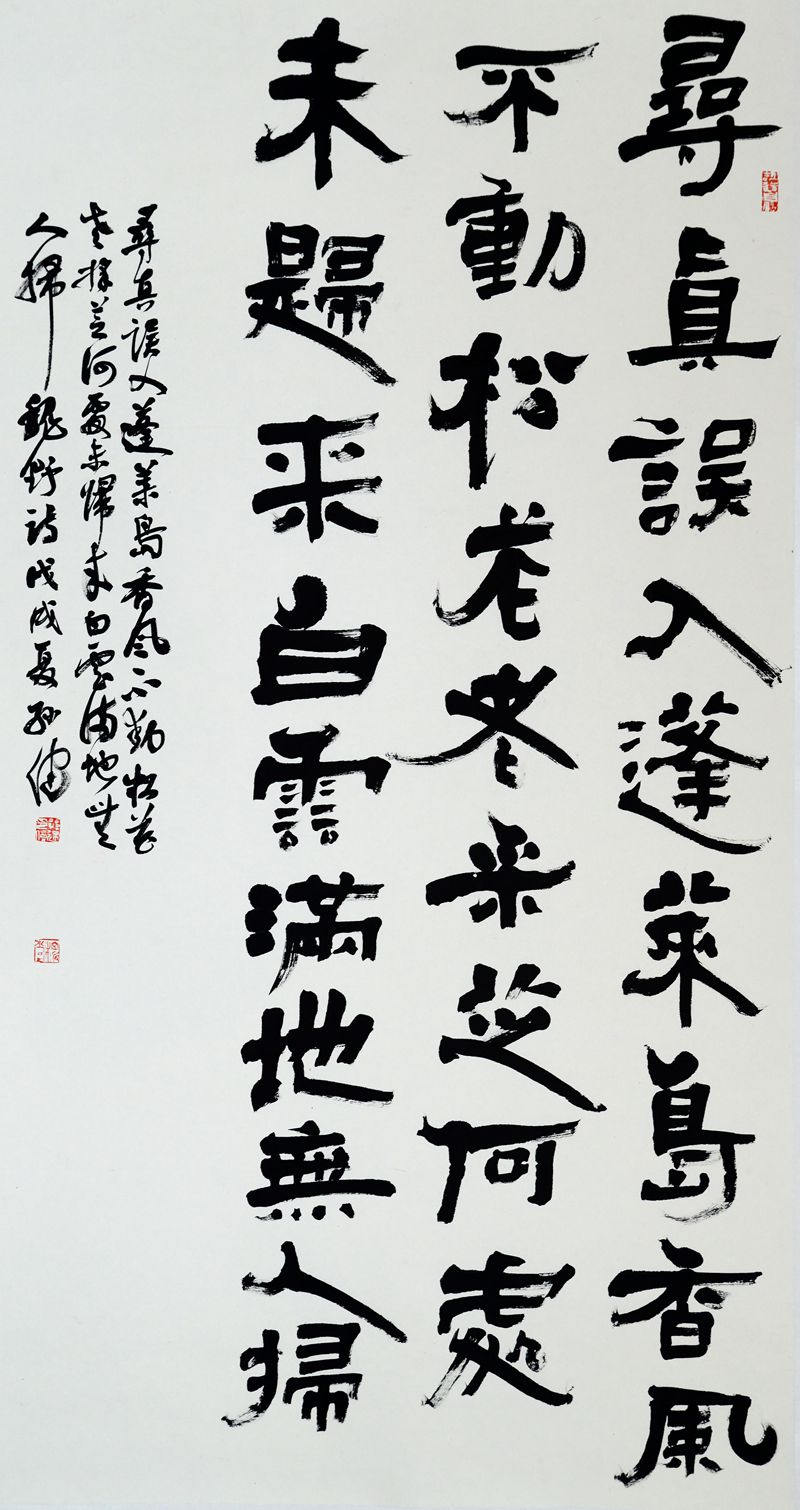 尋真誤入蓬萊島香風
不動松花老采芝何處
未歸来白雲滿地無人掃
尋真誤入蓬萊島香風不動松花
老採芝何處未歸来白雲滿地無
人掃 魏野詩戊戌夏孙健